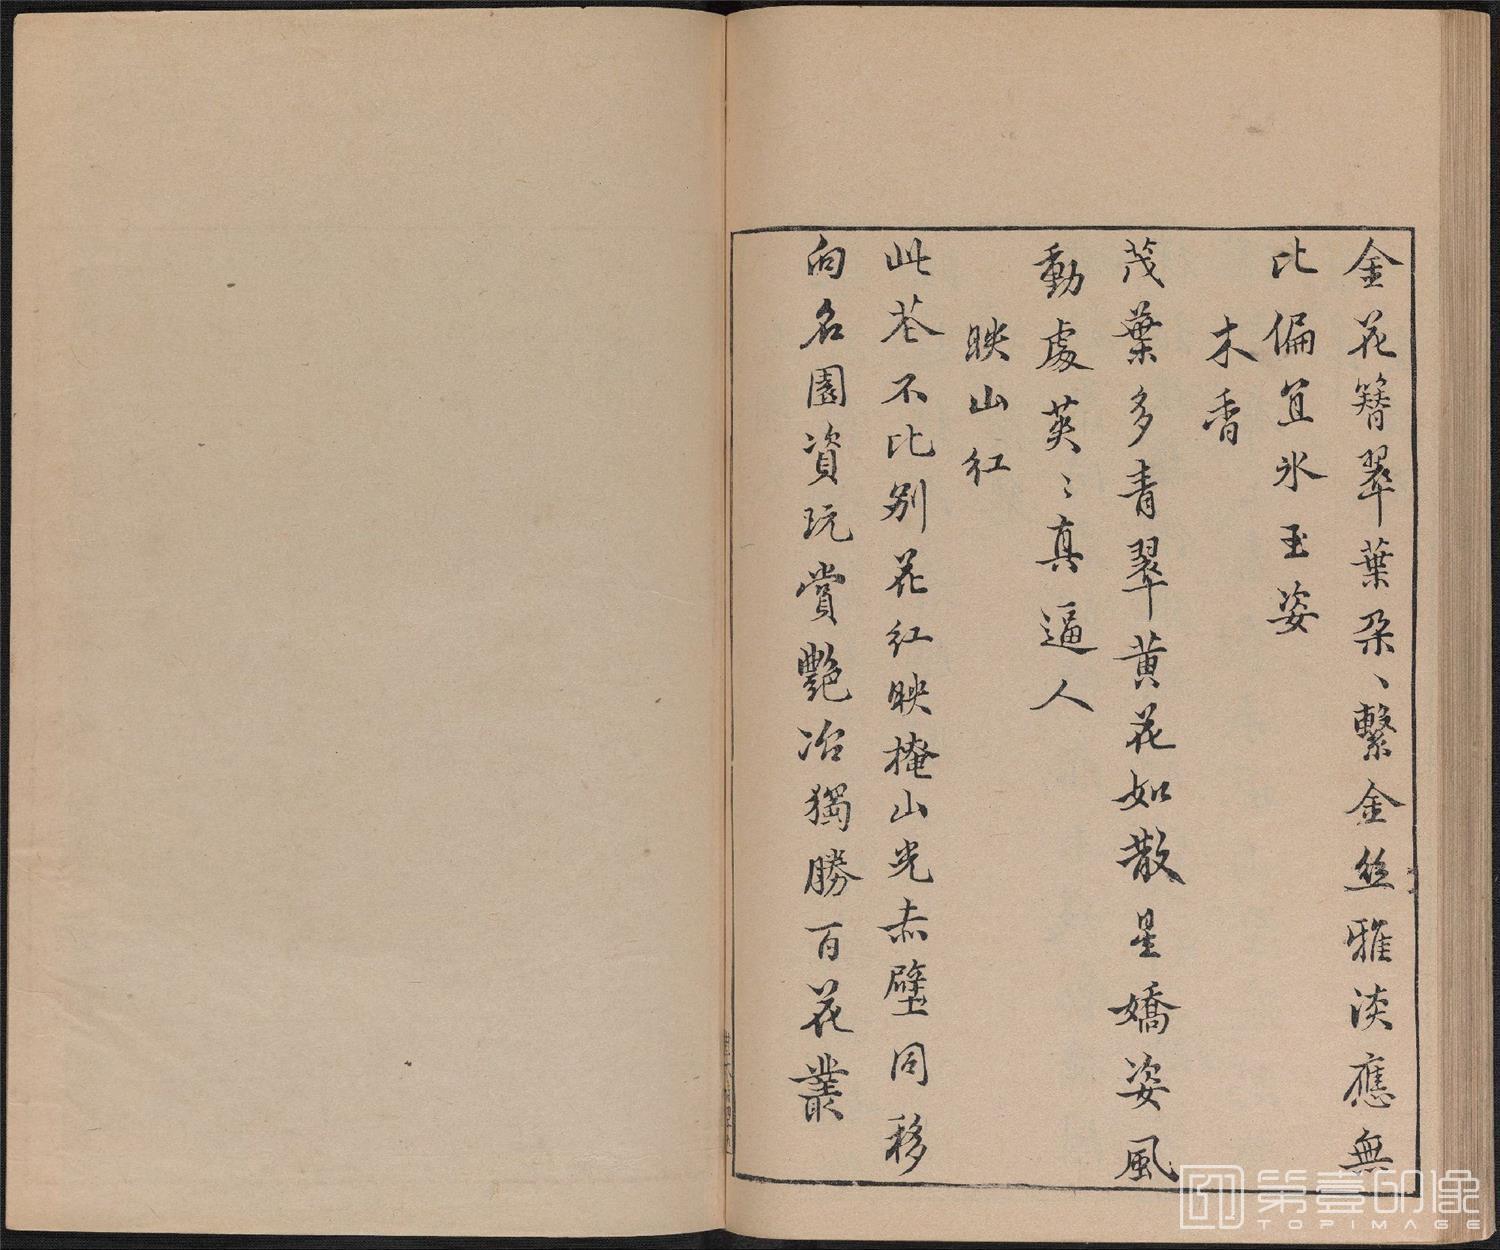 金花簪翠葉朶、繫金絲雅淡應無
比偏宜氷玉姿
木香
茂葉多青翠黄花如散星嬌姿風
動處英〻真逼人
映山紅
此花不比别花紅映掩山光赤壁同移
向名園資玩賞艷冶獨勝百花叢
第壹印像
TOPIMAGE